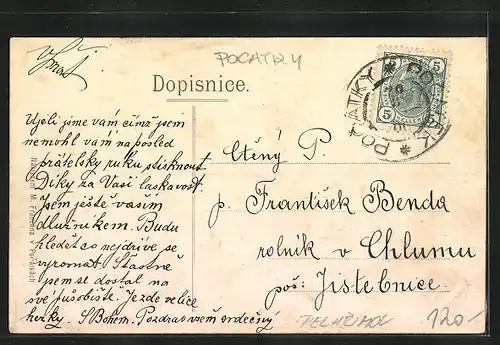 POČATKY
Dopisnice.
5 5
POČÁTKY * POČATEK *
Ujeli jsme vám čímž jsem
nemohl vám na posled
přátelsky ruku stisknout
Díky za Vaši laskavost.
Jsem ještě vaším
dlužníkem. Budu
hledět co nejdříve se
vyrovnat. Šťastně
jsem se dostal na
své působiště. Je zde velice
hezky. S Bohem. Pozdrav všem srdečný
Ctěný P.
p. František Benda
rolník v Chlumu
pos: Jistebnice.
PELHŘIMOV
120-